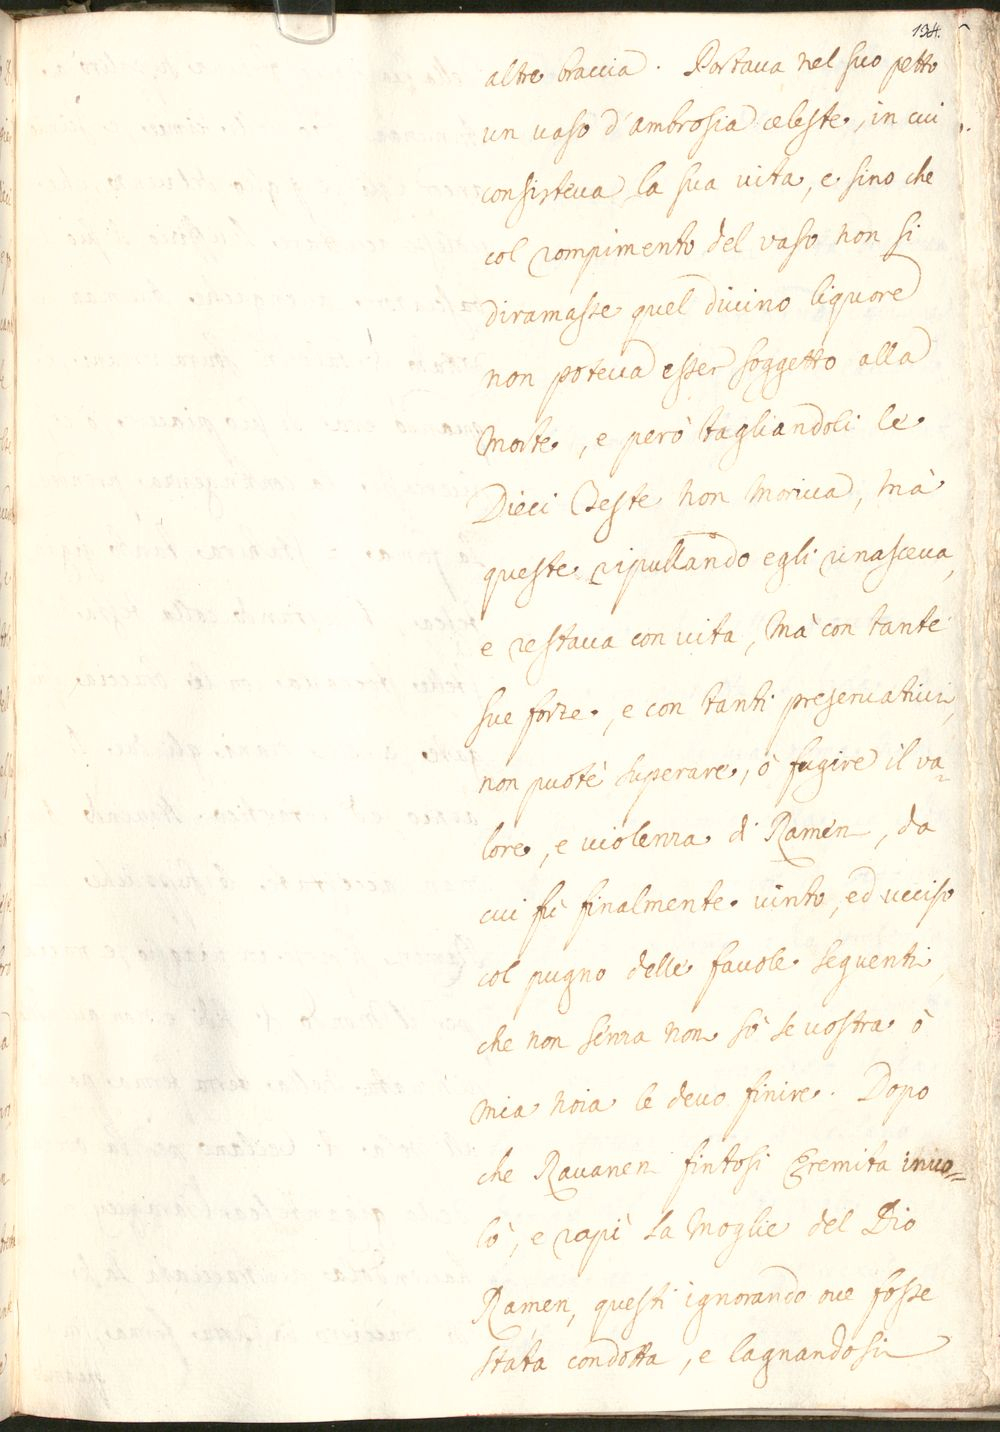 134.
altre braccia. Portaua nel suo petto
un uaso d'ambrosia celeste, in cui
consisteua la sua uita, e sino che
col rompimento del vaso non si
diramasse quel diuino liquore
non poteua esser soggetto alla
Morte, e però tagliandoli le
Dieci Teste non moriua, mà
queste ripullando egli rinasceua,
e restaua con uita, Mà con tante
sue forze, e con tanti preseruatiui,
non puotè superare, ò fugire il va=
lore, e uiolenza di Ramen, da
cui fù finalmente uinto, ed ucciso
col pugno delle fauole seguenti,
che non senza non sò se uostra ò
mia noia le deuo finire. Dopo
che Rauanen fintosi Eremita inuo=
lò, e rapì la Moglie del Dio
Ramen, questi ignorando oue fosse
stata condotta, e lagnandosi